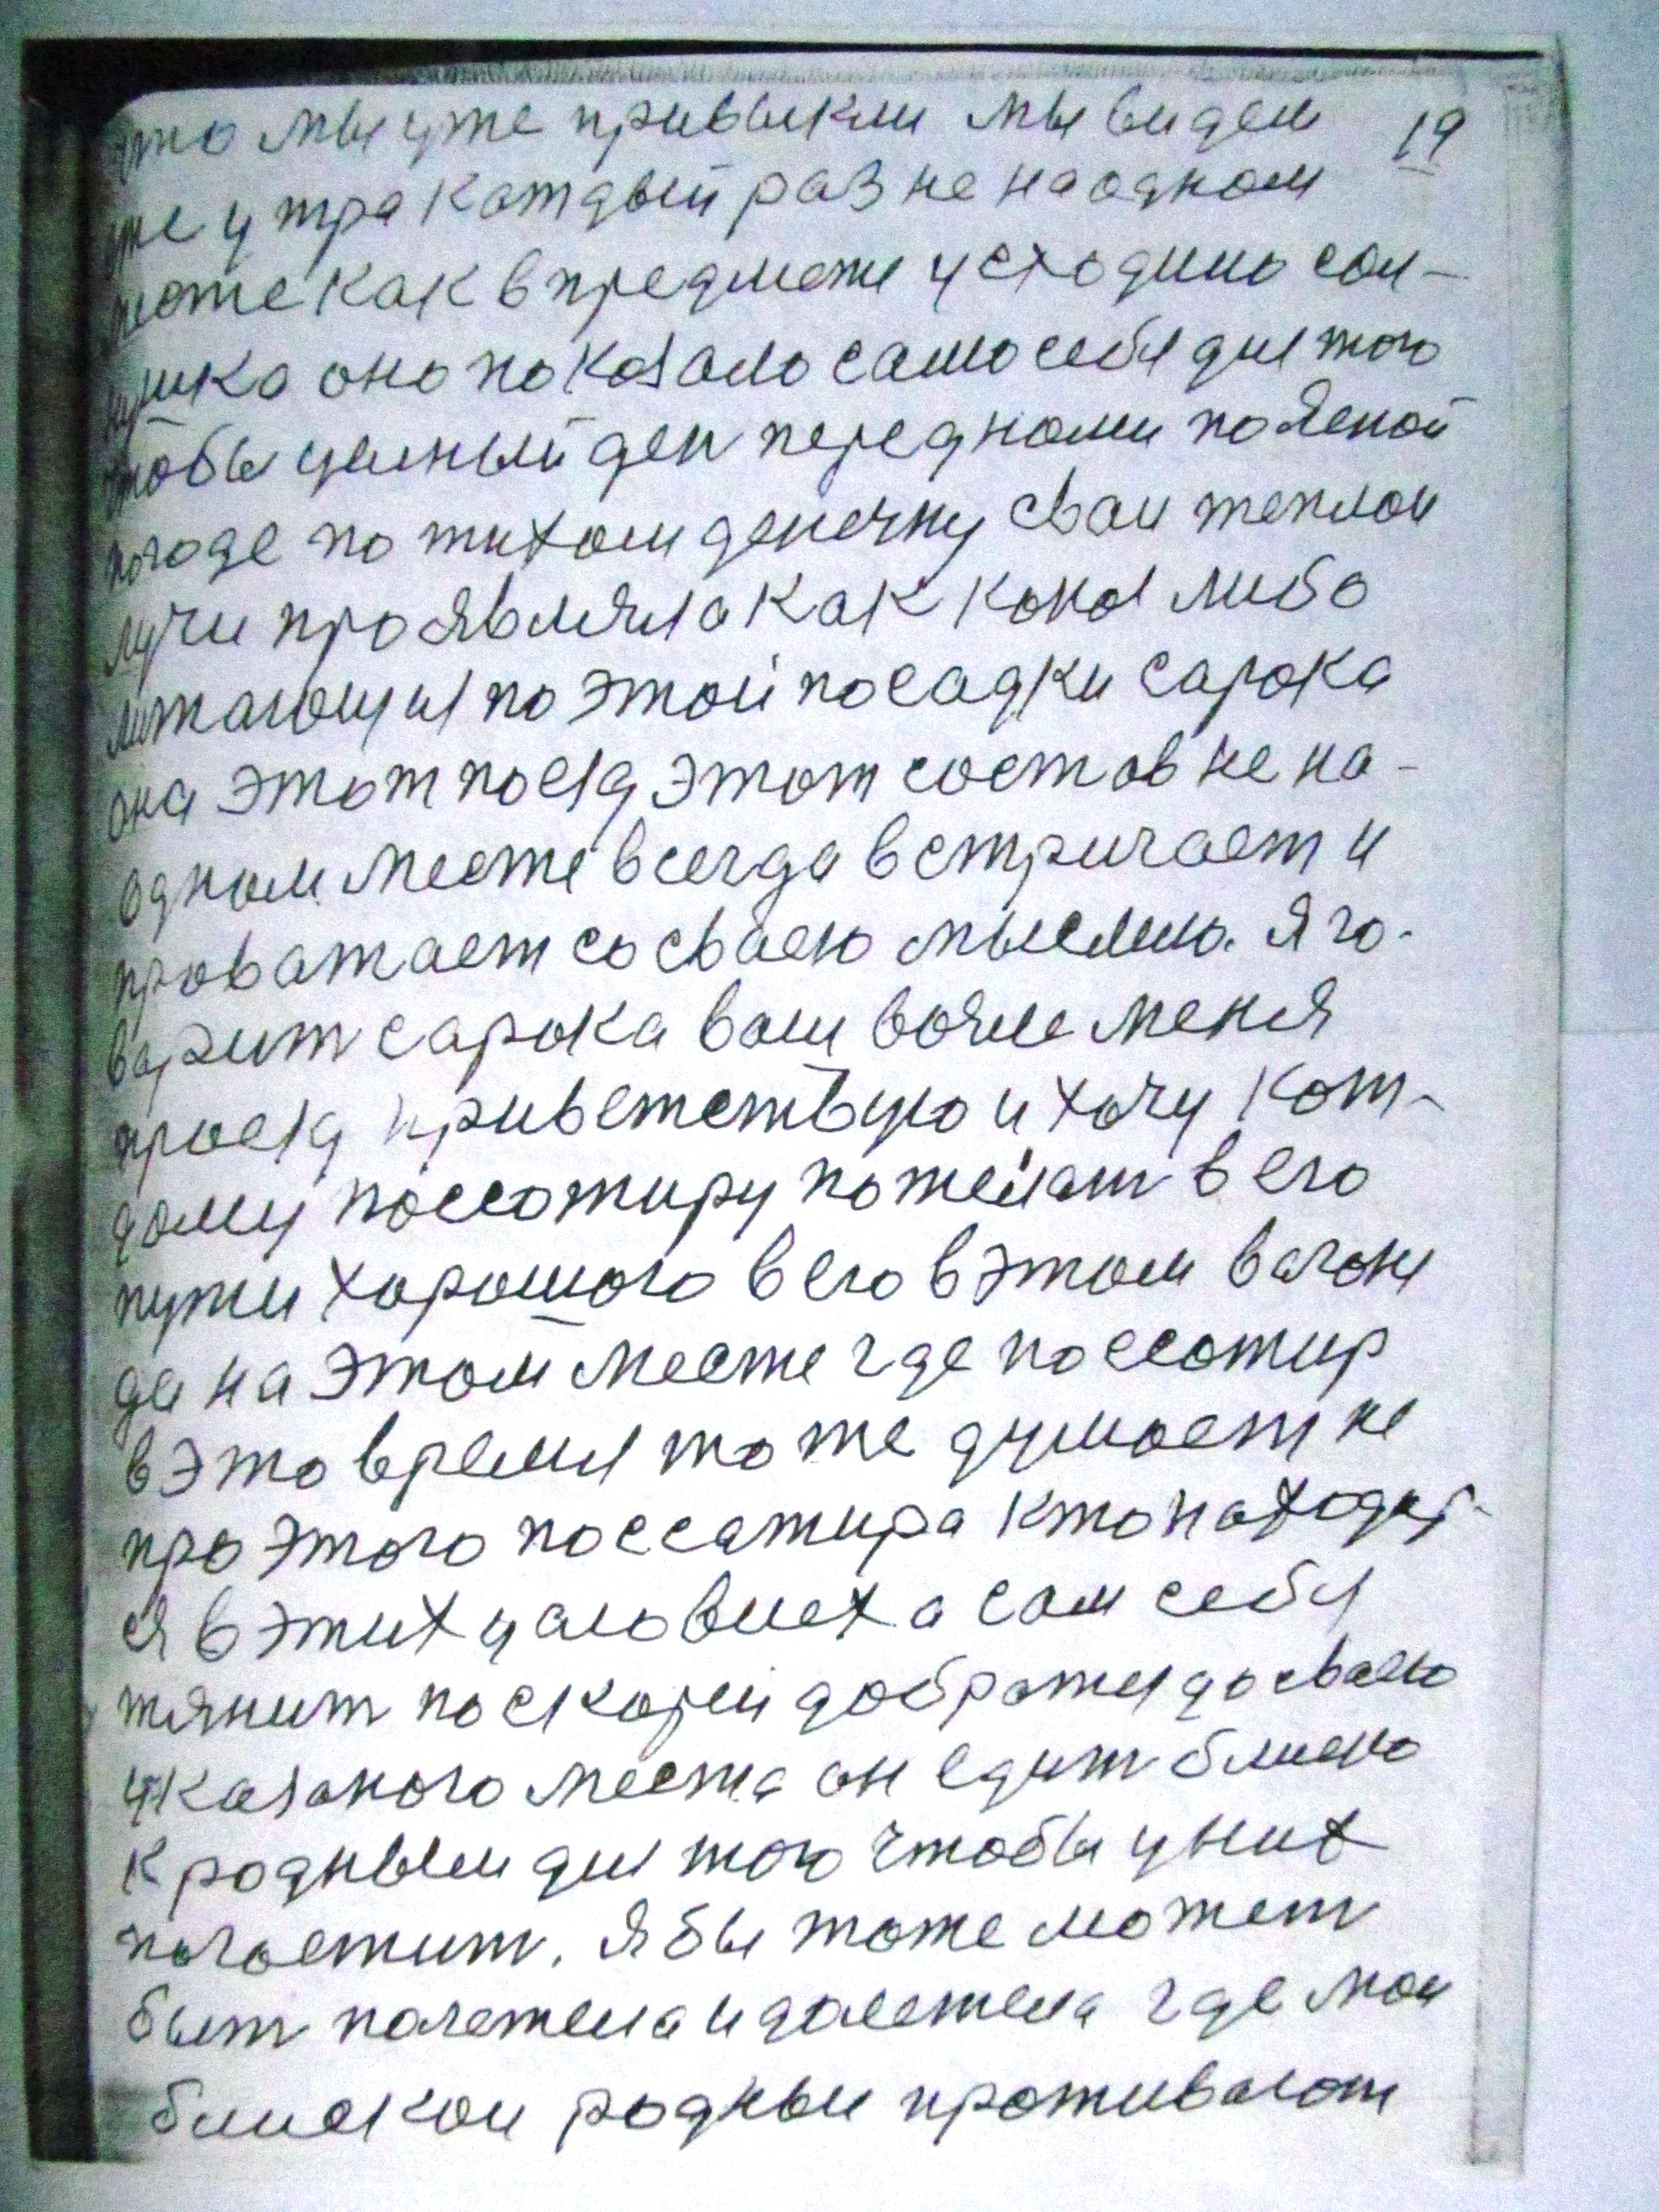 что мы уже привыкли мы видем 19
уже утра каждый раз не на одном
месте как в предмете усходило сол-
нушка оно показало само себя для того
чтобы целный ден перед нами по ясной
погоде по тихом денечку сваи теплои
лучи проявляла как кокая либо
литающия по этой посадки сарока
она этот поезд этот состов не на-
одном месте всегда встричает и
проважает со сваею мыслию. Я го-
варит сарока вам возле меня
проезд приветствую и хочу кож-
дому поссожиру пожелат в его
пути хорошого в его в этом вагоне
да на этом месте где поссожир
в это время тоже думает не
про этого поссажира кто находит-
ся в этих условиех а сам себя
тянит поскорей добратся до сваего
указаного места он едит близко
к родным для того чтобы у них
погостит. Я бы тоже может
быт полетела и долетела где мои
близкои родныи проживают